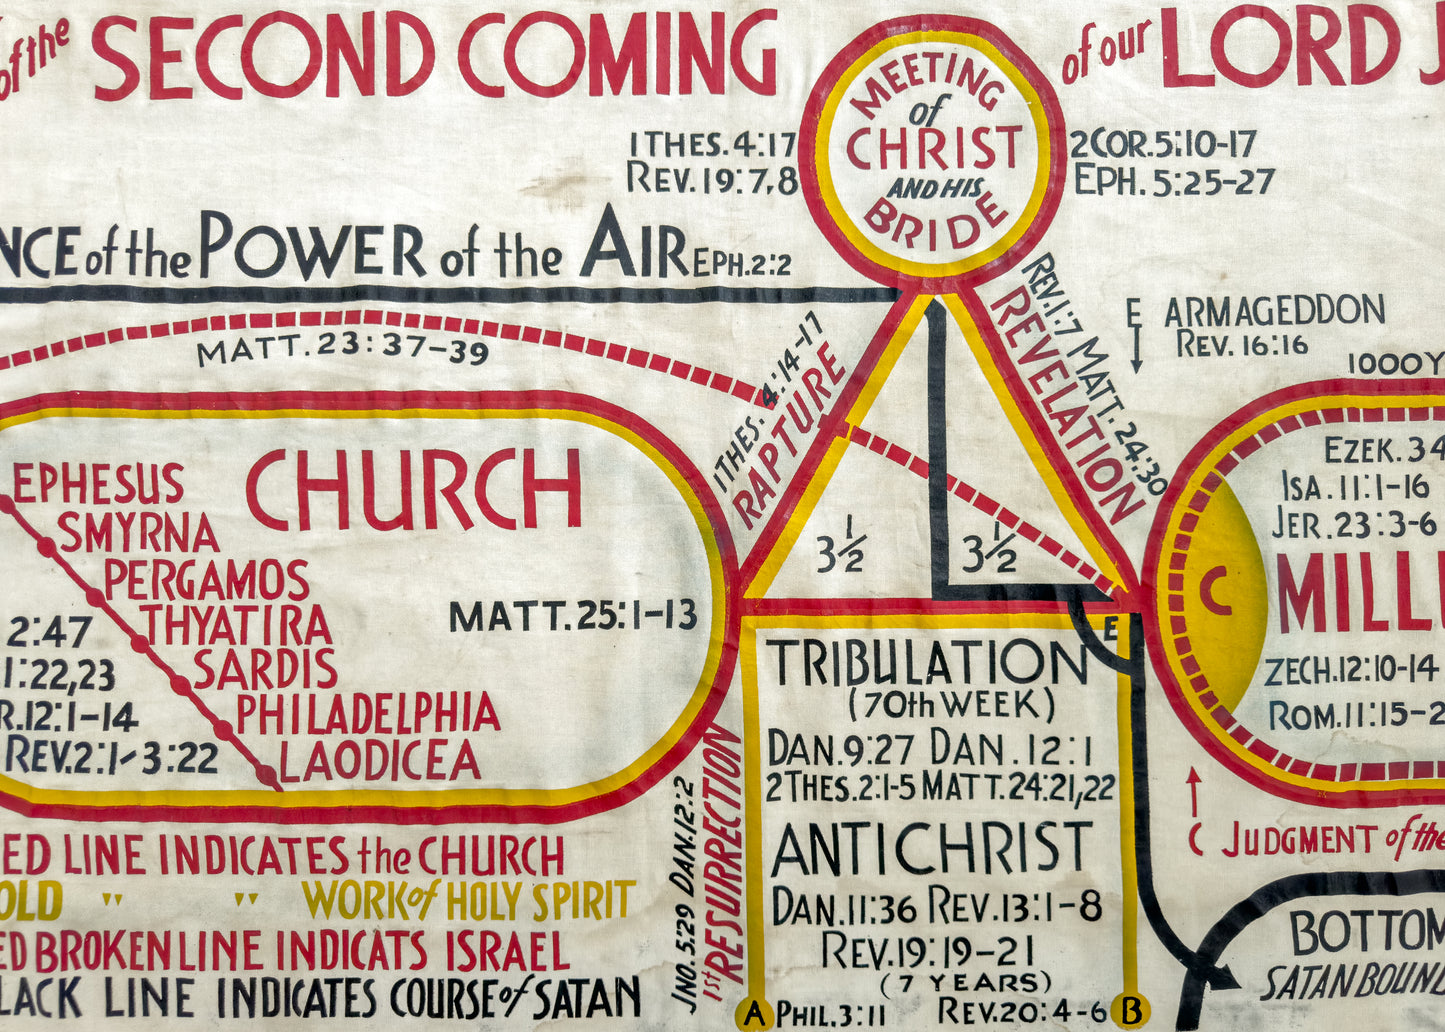 of the SECOND COMING of our LORD J
MEETING
of
CHRIST
AND HIS
BRIDE
1 THES. 4:17
REV. 19:7,8
2 COR. 5:10-17
EPH. 5:25-27
NCE of the POWER of the AIR EPH. 2:2
MATT. 23:37-39
1 THES. 4:14-17
RAPTURE
REV. 1:7 MATT. 24:30
REVELATION
E ARMAGEDDON
REV. 16:16
1000 Y
CHURCH
EPHESUS
SMYRNA
PERGAMOS
THYATIRA
SARDIS
PHILADELPHIA
LAODICEA
2:47
1:22,23
R. 12:1-14
REV. 2:1-3:22
MATT. 25:1-13
3 1/2
3 1/2
E
TRIBULATION
(70th WEEK)
DAN. 9:27 DAN. 12:1
2 THES. 2:1-5 MATT. 24:21,22
ANTICHRIST
DAN. 11:36 REV. 13:1-8
REV. 19:19-21
(7 YEARS)
A PHIL. 3:11 REV. 20:4-6 B
JNO. 5:29 DAN. 12:2
1st RESURRECTION
EZEK. 34
ISA. 11:1-16
JER. 23:3-6
C
MILL
ZECH. 12:10-14
ROM. 11:15-2
C JUDGMENT of the
BOTTOM
SATAN BOUND
ED LINE INDICATES the CHURCH
OLD " " WORK of HOLY SPIRIT
ED BROKEN LINE INDICATS ISRAEL
LACK LINE INDICATES COURSE of SATAN